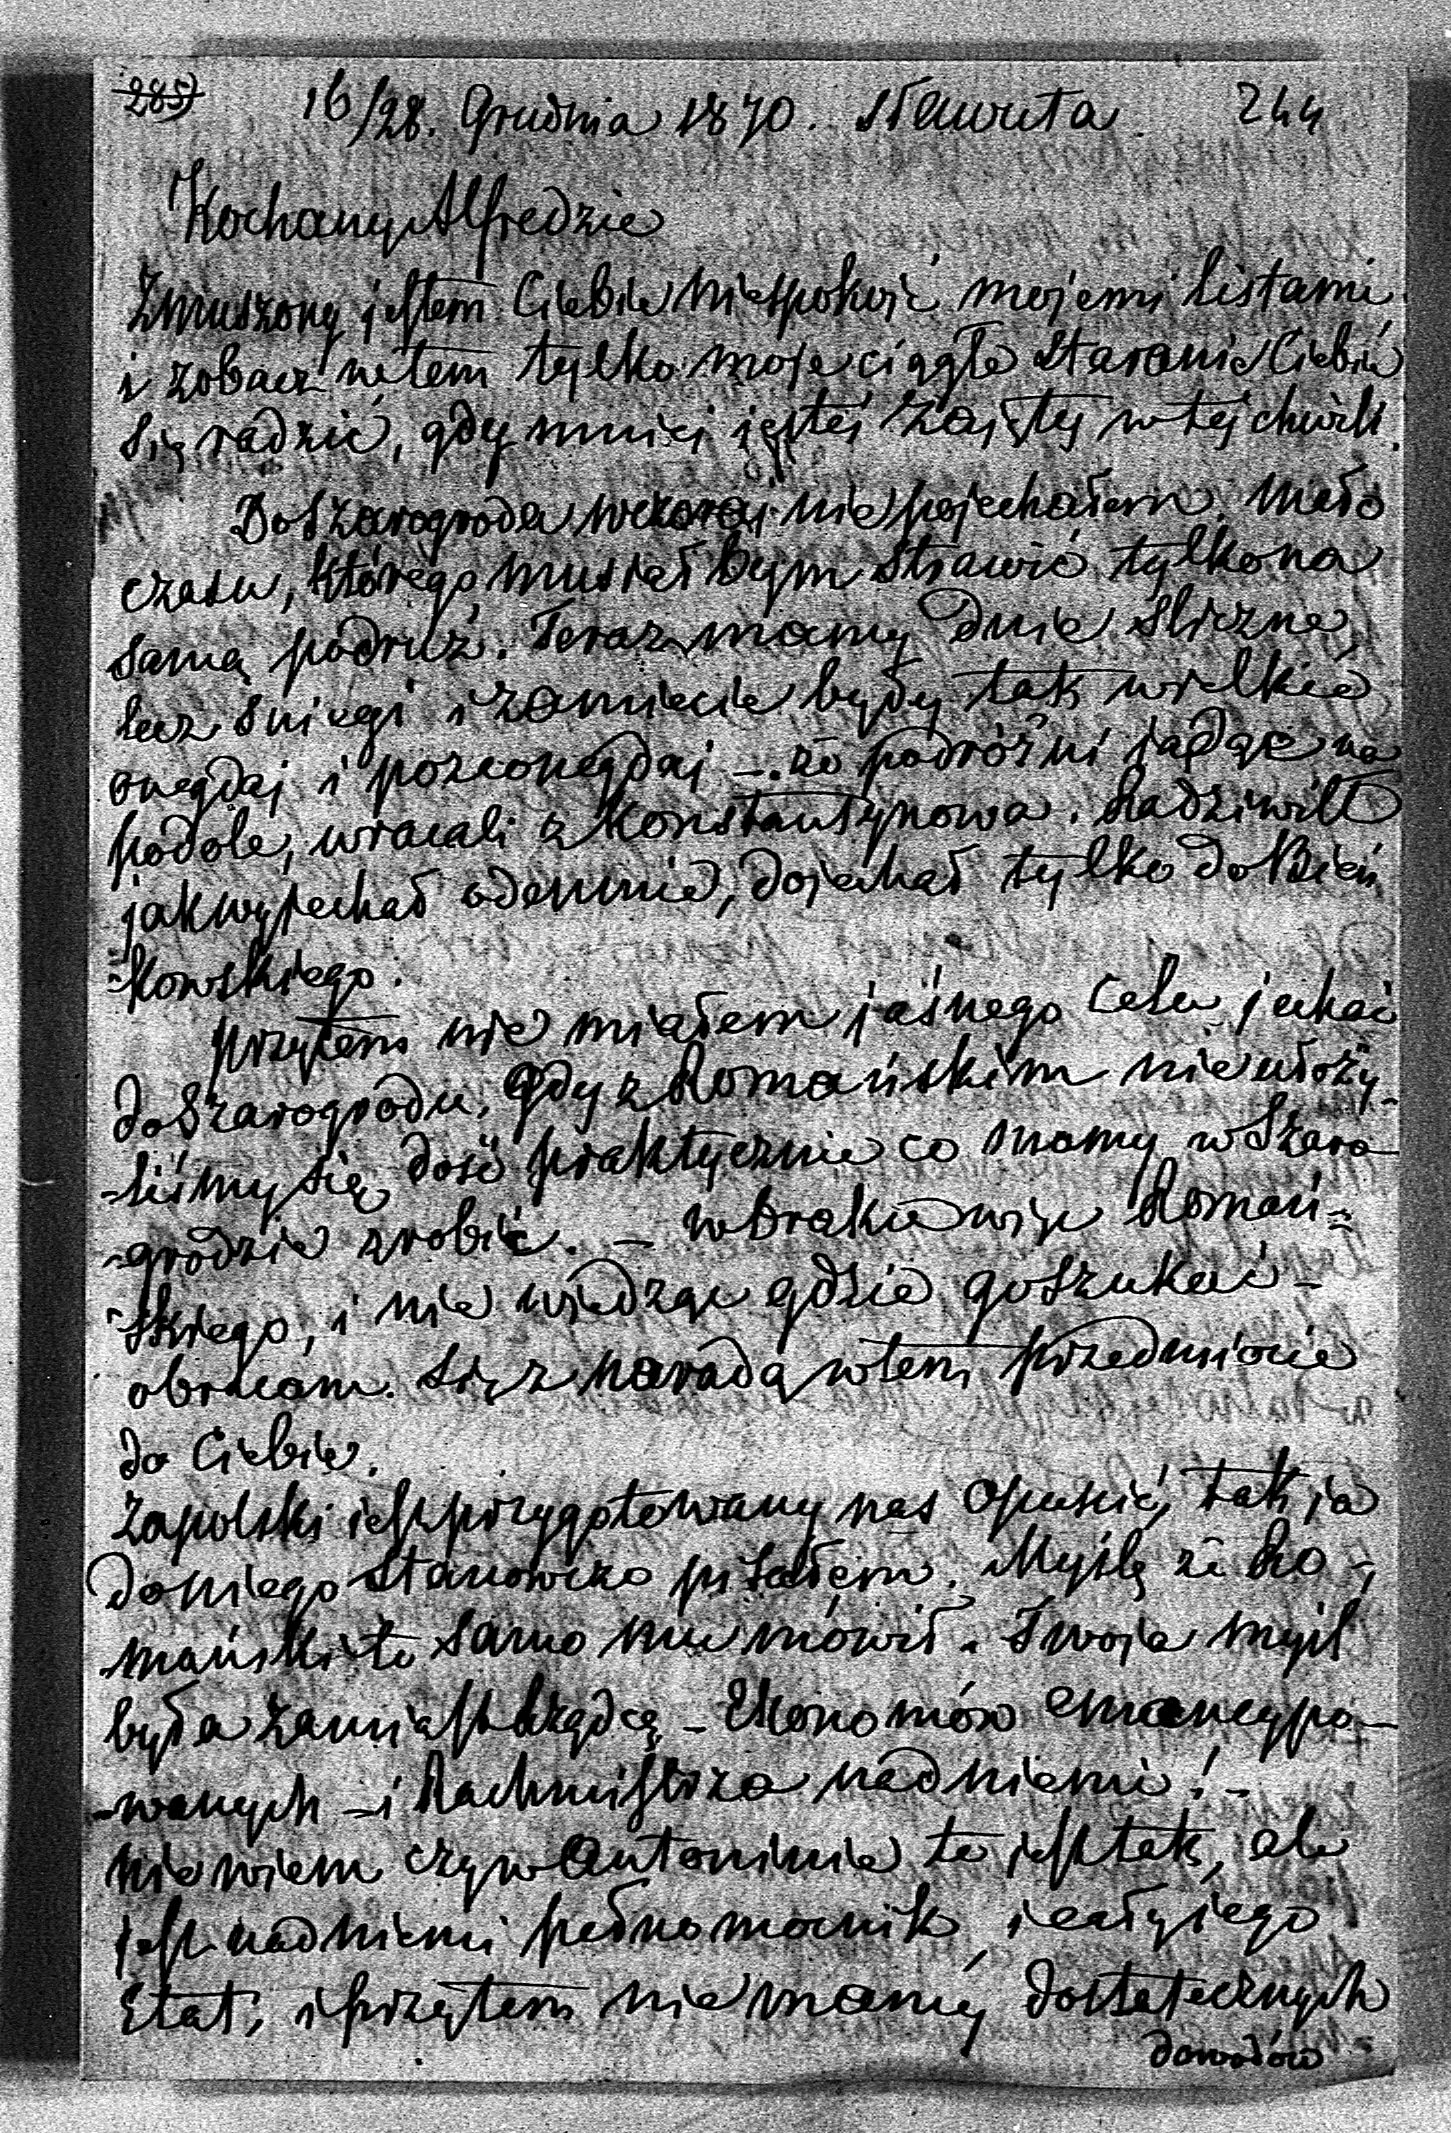 285) 16/28. Grudnia 1870. Sławuta 244
Kochany Alfredzie
Zmuszony jestem Ciebie niespokoić mojemi listami
i zobacz w tem tylko moje ciągłe staranie Ciebie
się radzić, gdy mniej jesteś zajęty w tej chwili.
Do Szarogroda wczoraj nie pojechałem. Mało
czasu, którego musiał bym strawić tylko na
samą podróż. Teraz mamy dnie śliczne,
lecz śniegi i zamiecie były tak wielkie
onegdaj i pozaonegdaj – że podróżni jadąc na
podole, wracali z Konstantynowa. Radziwiłł
jak wyjechał odemnie, dojechał tylko do Bień
-kowskiego.
przytem nie miałem jaśnego celu jechać
do Szarogrodu, gdy z Romańskim nie ułoży-
-liśmy się dość praktycznie co mamy w Szaro
-grodzie zrobić. – w braku więc Romań=
skiego, i nie wiedząc gdzie go szukać –
obracam się z naradą w tem przedmiocie
do Ciebie.
Zapolski jest przygotowany nas opuścić, tak ja
do niego stanowczo pisałem. Myślę że Ro-
mański to samo mu mówił. Twoja myśl
była zamiast Rządcą – Ekonomów emancypo-
-wanych – i Rachmistrza nad niemi! –
nie wiem czy w Antoninie to jest tak, ale
jest nad niemi pełnomocnik, i cały jego
Etat, i przytem nie mamy dostatecznych
dowodów